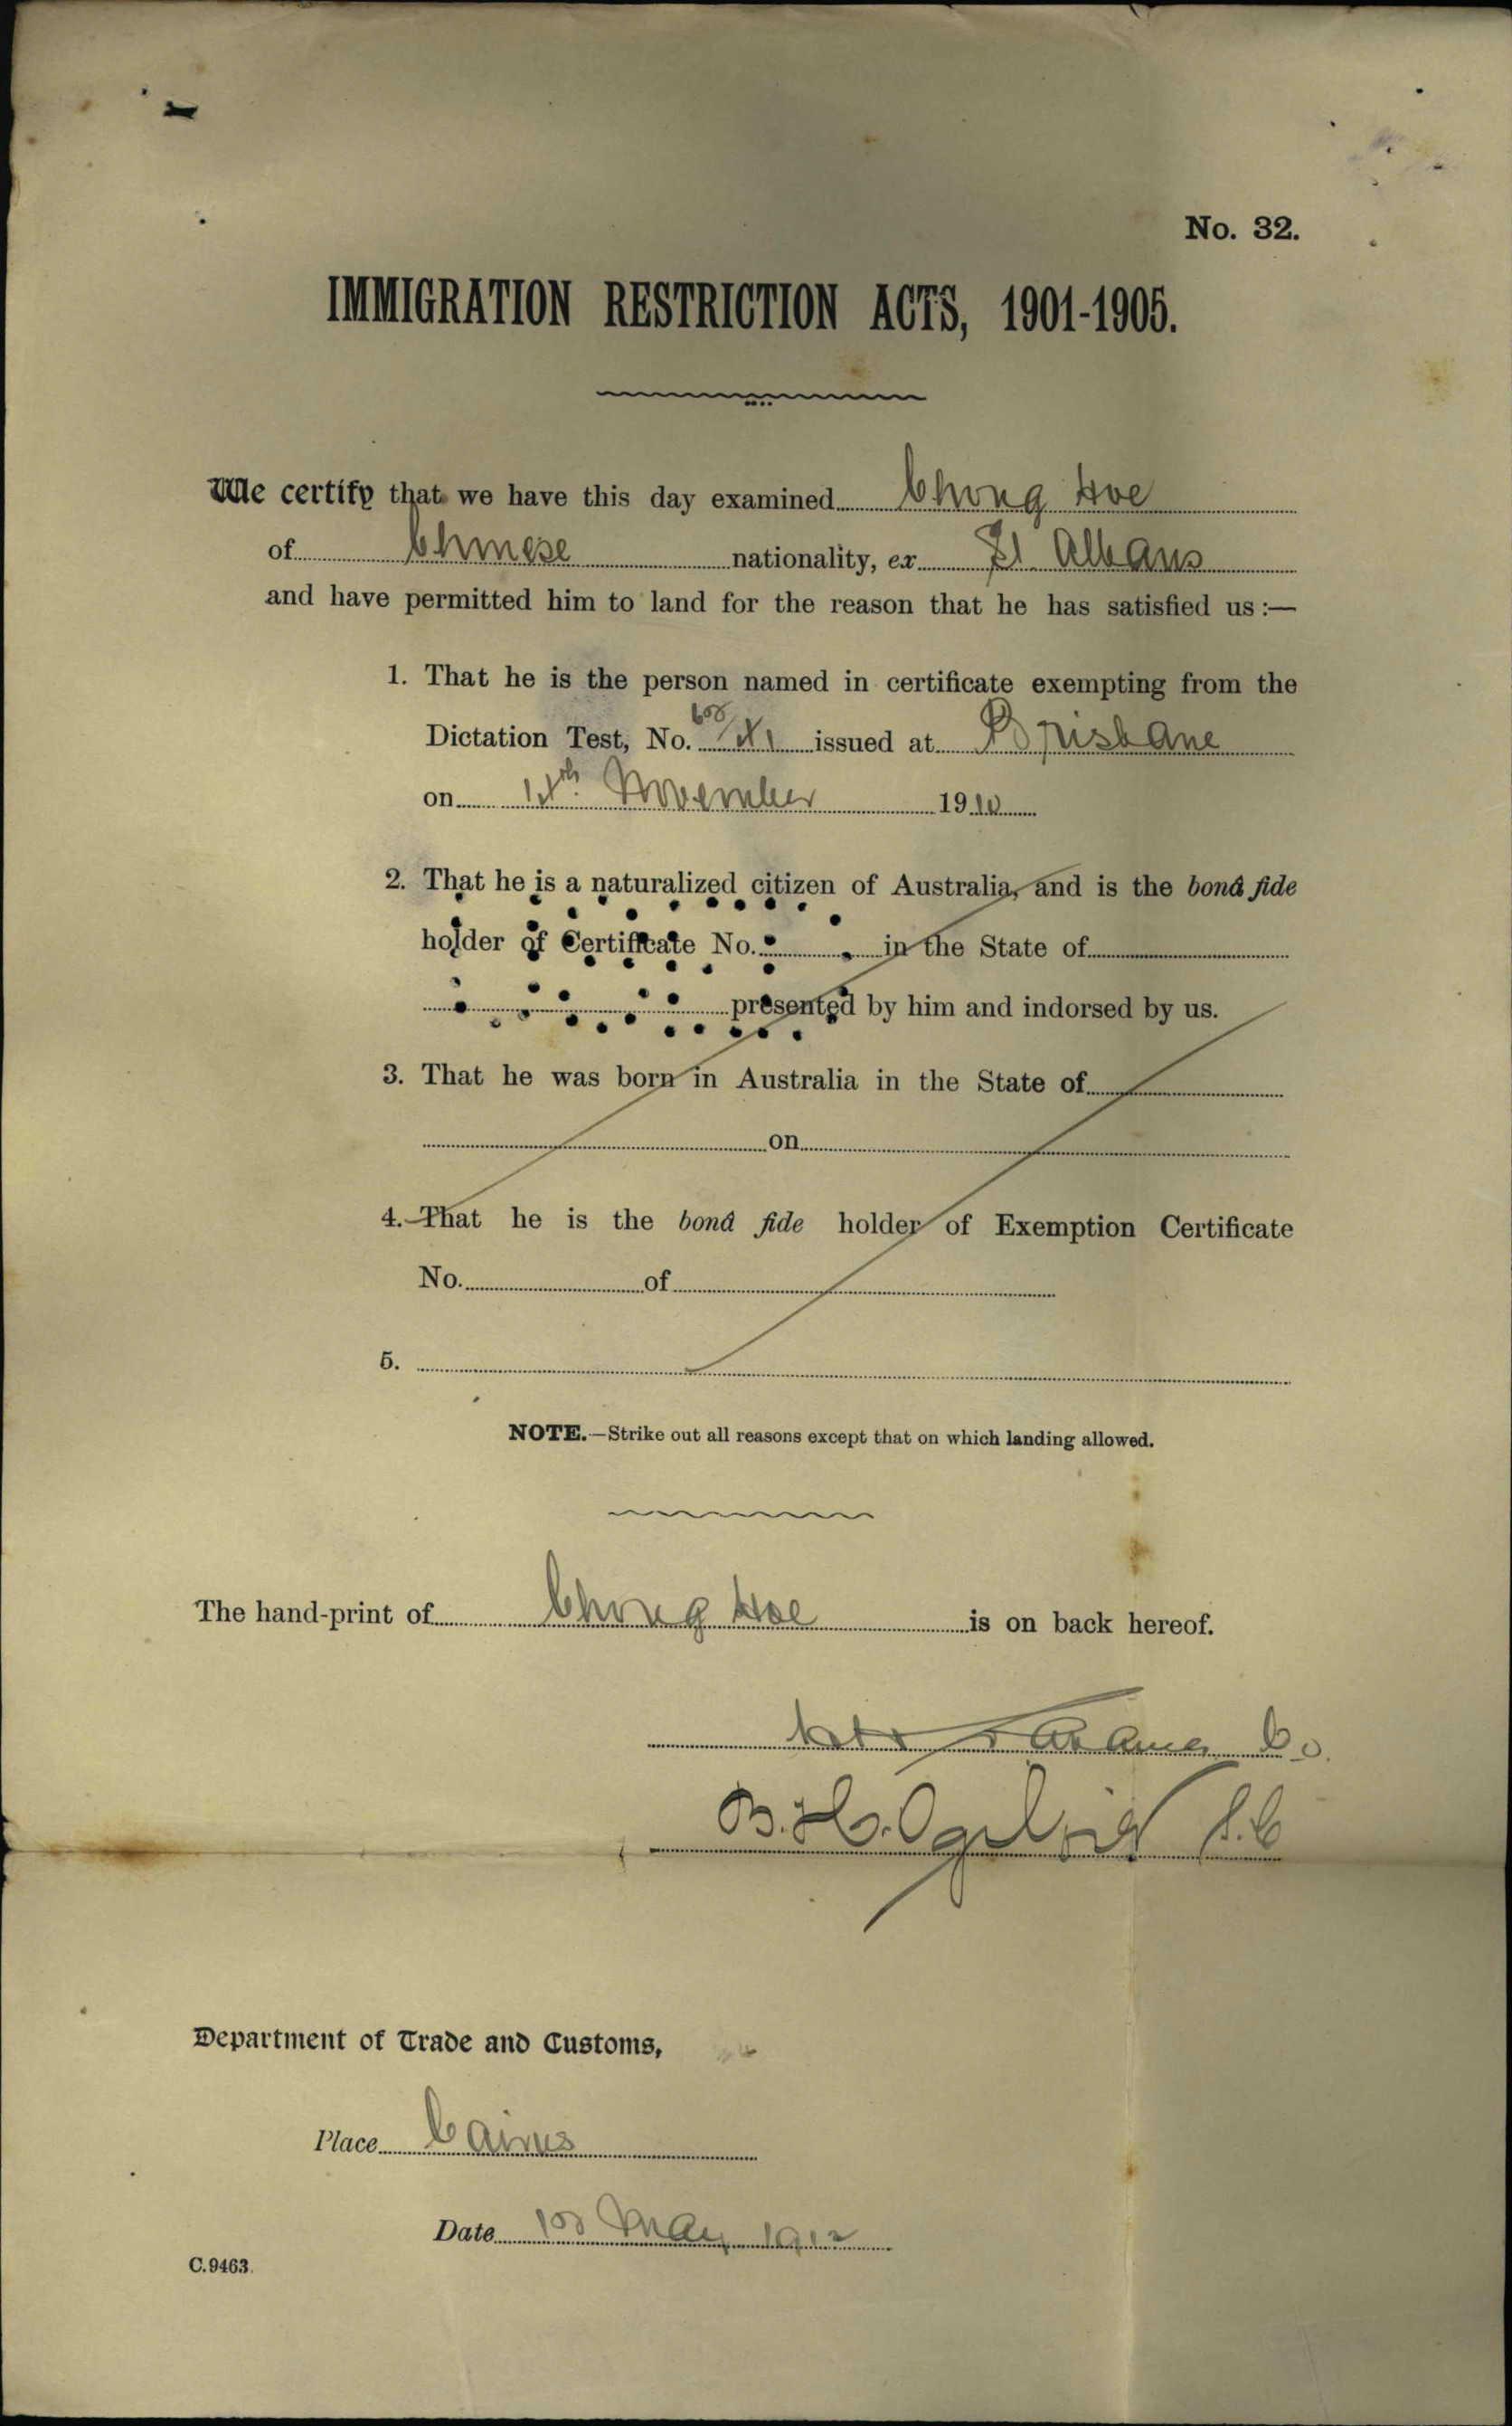 No. 32.
IMMIGRATION RESTRICTION ACTS, 1901-1905.
We certify that we have this day examined Chong Hoe
of Chinese nationality, ex St Albans
and have permitted him to land for the reason that he has satisfied us :—
1. That he is the person named in certificate exempting from the
Dictation Test, No. issued at Brisbane
on November 1910
2. That he is a naturalized citizen of Australia, and is the bonâ fide
holder of Certificate No. in the State of
presented by him and indorsed by us.
3. That he was born in Australia in the State of
on
4. That he is the bonâ fide holder of Exemption Certificate
No. of
5.
NOTE.—Strike out all reasons except that on which landing allowed.
The hand-print of Chong Hoe is on back hereof.
B. H. Ogilvie
Department of Trade and Customs,
Place Cairns
Date May 1912
C.9463.